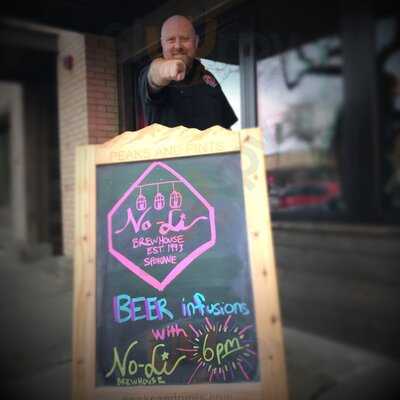 PEAKS AND PINTS
No-Li
BREWHOUSE
EST. 1993
SPOKANE
BEER infusions
with
No-Li
BREWHOUSE
6pm